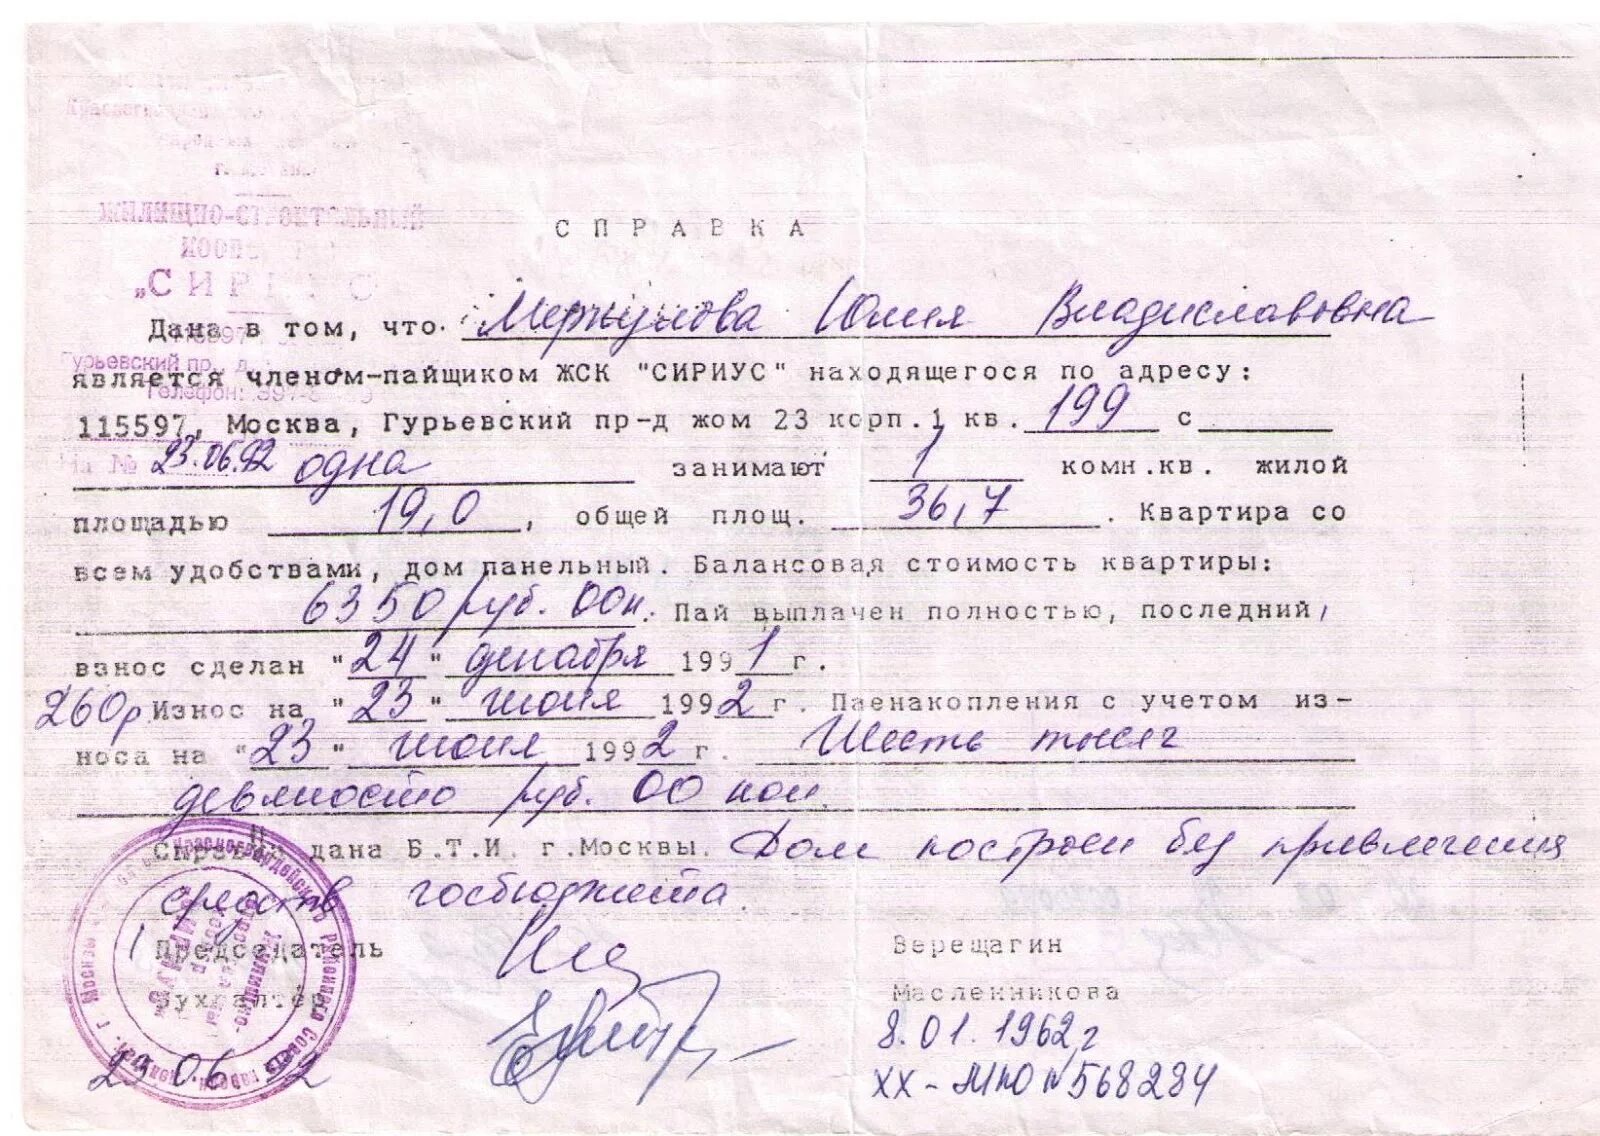 ЖИЛИЩНО-СТРОИТЕЛЬНЫЙ
„СИРИУС
СПРАВКА
Дана в том, что Меркулова Юлия Владиславовна
Гурьевский пр., д.
является членом-пайщиком ЖСК "СИРИУС" находящегося по адресу:
Телефон: 397-
115597, Москва, Гурьевский пр-д жом 23 корп.1 кв. 199 с
на № 23.06.92 одна занимают 1 комн.кв. жилой
площадью 19,0, общей площ. 36,7. Квартира со
всем удобствами, дом панельный. Балансовая стоимость квартиры:
6350 руб. 00 к. Пай выплачен полностью, последний
взнос сделан "24" декабря 1991 г.
260р Износ на "23" июня 1992 г. Паенакопления с учетом из-
носа на "23" июня 1992 г. Шесть тысяч
девяносто руб. 00 коп.
Справка дана Б.Т.И. г.Москвы. Дом построен без привлечения
средств госбюджета.
Председатель Верещагин
Бухгалтер Масленникова
8.01.1962 г
23.06.92 XX-МЮ № 568284